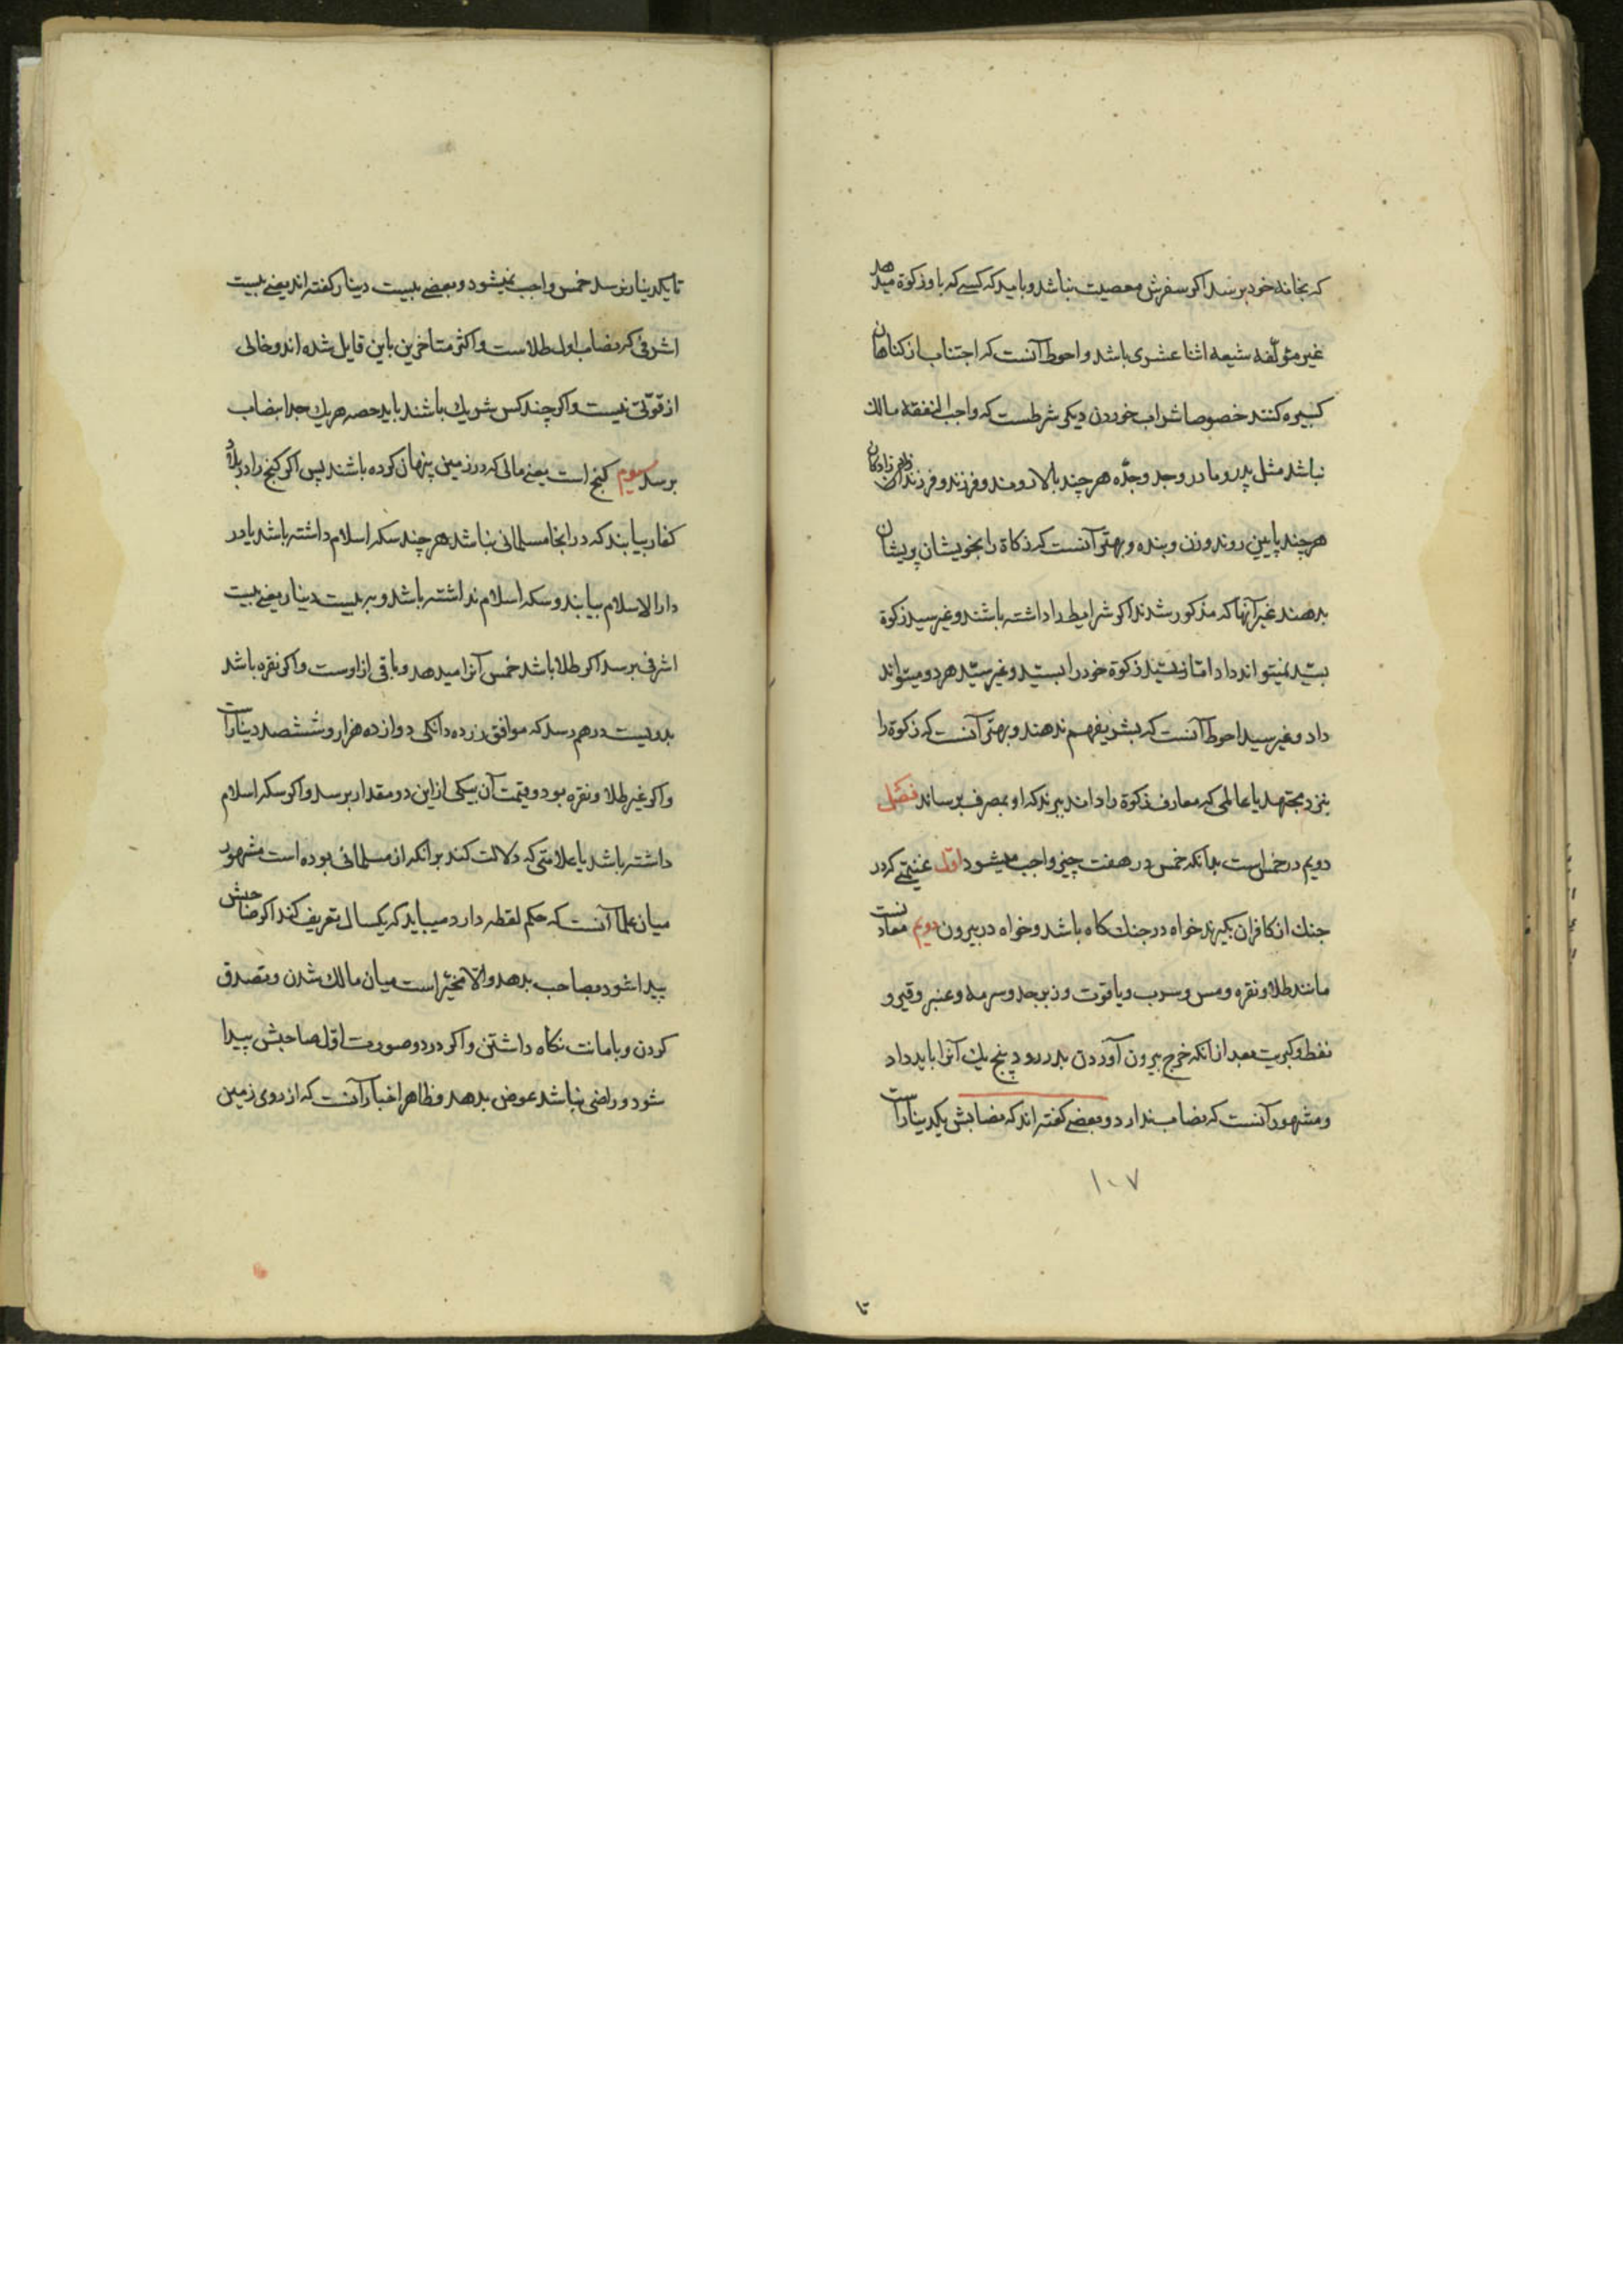 که بخانه خود برسد اکر سفرش معصیت نباشد و باید که کسی که باو زکوة میدهد
غیر مؤلّفه شیعه اثنا عشری باشد و احوط آنست که اجتناب از کناهان
کبیره کنند خصوصا شراب خوردن دیکر شرطست که واجب النفقه مالک
نباشد مثل پدر و مادر و جد و جدّه هر چند بالا روند و فرزند و فرزند زادکان
هر چند پایین روند و زن و بنده و بهتر آنست که زکاة را بخویشان پریشان
بدهند غیر آنها که مذکور شدند اکر شرایط را داشته باشند و غیر سید زکوة
بسیّد نمیتواند داد امّا سیّد زکوة خود را بسیّد و غیر سیّد هر دو میتواند
داد و غیر سید احوط آنست که بشریفهم ندهند و بهتر آنست که زکوة را
بنزد مجتهد یا عالمی که مصارف زکوة را داند ببرند که او بمصرف برساند فصل
دویم در خمس است بدانکه خمس در هفت چیز واجب میشود اوّل غنیمتی که در
جنک از کافران بکیرند خواه در جنک کاه باشد و خواه در بیرون دویم معادنست
مانند طلا و نقره و مس و سرب و یاقوت و زبرجد و سرمه و عنبر و قیر و
نفط و کبریت بعد از انکه خرج بیرون آوردن بدر رود پنج یک آنرا باید داد
و مشهور آنست که نصاب ندارد و بعضی کفته اند که نصابش یکدینار است
۱۰۷
تا
تا یکدینار نرسد خمس واجب نمیشود و بعضی بیست دینار کفته اند یعنی بیست
اشرفی که نصاب اول طلاست و اکثر متاخرین باین قایل شده اند و خالی
از قوّتی نیست و اکر چند کس شریک باشند باید حصه هر یک جدا بنصاب
برسد سیوم کنج است یعنی مالی که در زمین پنهان کرده باشند پس اکر کنج را در بلاد
کفار بیابند که در انجا مسلمانی نباشد هر چند سکه اسلام داشته باشد یا در
دار الاسلام بیابند و سکه اسلام نداشته باشد و به بیست دینار یعنی بیست
اشرفی برسد اکر طلا باشد خمس آنرا میدهد و باقی از اوست و اکر نقره باشد
بدویست درهم رسد که موافق زر ده دانکی دوازده هزار و ششصد دینار است
و اکر غیر طلا و نقره بود و قیمت آن بیکی از این دو مقدار برسد و اکر سکه اسلام
داشته باشد یا علامتی که دلالت کند بر انکه از مسلمانی بوده است مشهور
میان علما آنست که حکم لقطه دارد میباید که یکسال تعریف کند اکر صاحبش
پیدا شود بصاحب بدهد و الّا مخیّر است میان مالک شدن و تصدق
کردن و بامانت نکاه داشتن و اکر در دو صورت اوّل صاحبش پیدا
شود و راضی نباشد عوض بدهد و ظاهر اخبار آنست که از روی زمین